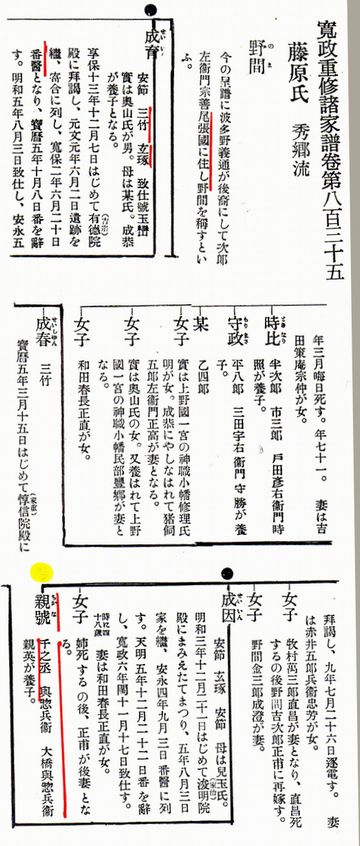 寛政重修諸家譜卷第八百三十五
藤原氏 秀郷流
野間
今の呈譜に波多野義通が後裔にして次郎
左衞門宗善尾張國に住し野間を稱すとい
ふ。
成育
安節 三竹 玄琢 致仕號玉巒
實は奥山氏が男。母は某氏。成恭
が養子となる。
享保十三年十二月七日はじめて有德院
殿に拜謁し、元文元年六月二日遺跡を
繼、寄合に列し、寛保二年六月二十日
番醫となり、寶暦五年十月八日番を辭
す。明和五年八月三日致仕し、安永五
年三月晦日死す。年七十一。 妻は吉
田策庵宗仲が女。
時比 半次郎 市三郎 戸田彦右衞門時
照が養子。
守政 平八郎 三田宇右衞門守勝が養
子。
某 乙四郎
女子 實は上野國一宮の神職小幡修理氏
明が女。成恭にやしなはれて猪飼
五郎左衞門正高が妻となる。
女子 實は奥山氏の女。又養はれて上野
國一宮の神職小幡民部豐郷が妻と
なる。
女子 和田春長正直が妻。
成春 三竹
寶暦五年三月十五日はじめて惇信院殿に
拜謁し、九年七月二十六日逐電す。 妻
は赤井五郎兵衞忠芳が女。
女子 牧村萬三郎直昌が妻となり、直昌死
するの後野間吉次郎正甫に再嫁す。
女子 野間金三郎成澄が妻。
成因 安節 玄琢 安節 母は兒玉氏。
明和三年十二月二十一日はじめて浚明院
殿にまみえたてまつり、五年八月三日
家を繼、安永四年九月三日番醫に列
す。天明五年十二月二十一日番を辭
し、寛政六年閏十一月十七日致仕す。
時に四十八歳 妻は和田春長正直が女。
女子 姉死するの後、正甫が後妻とな
る。
親號 千之丞 與惣兵衞 大橋與惣兵衞
親英が養子。